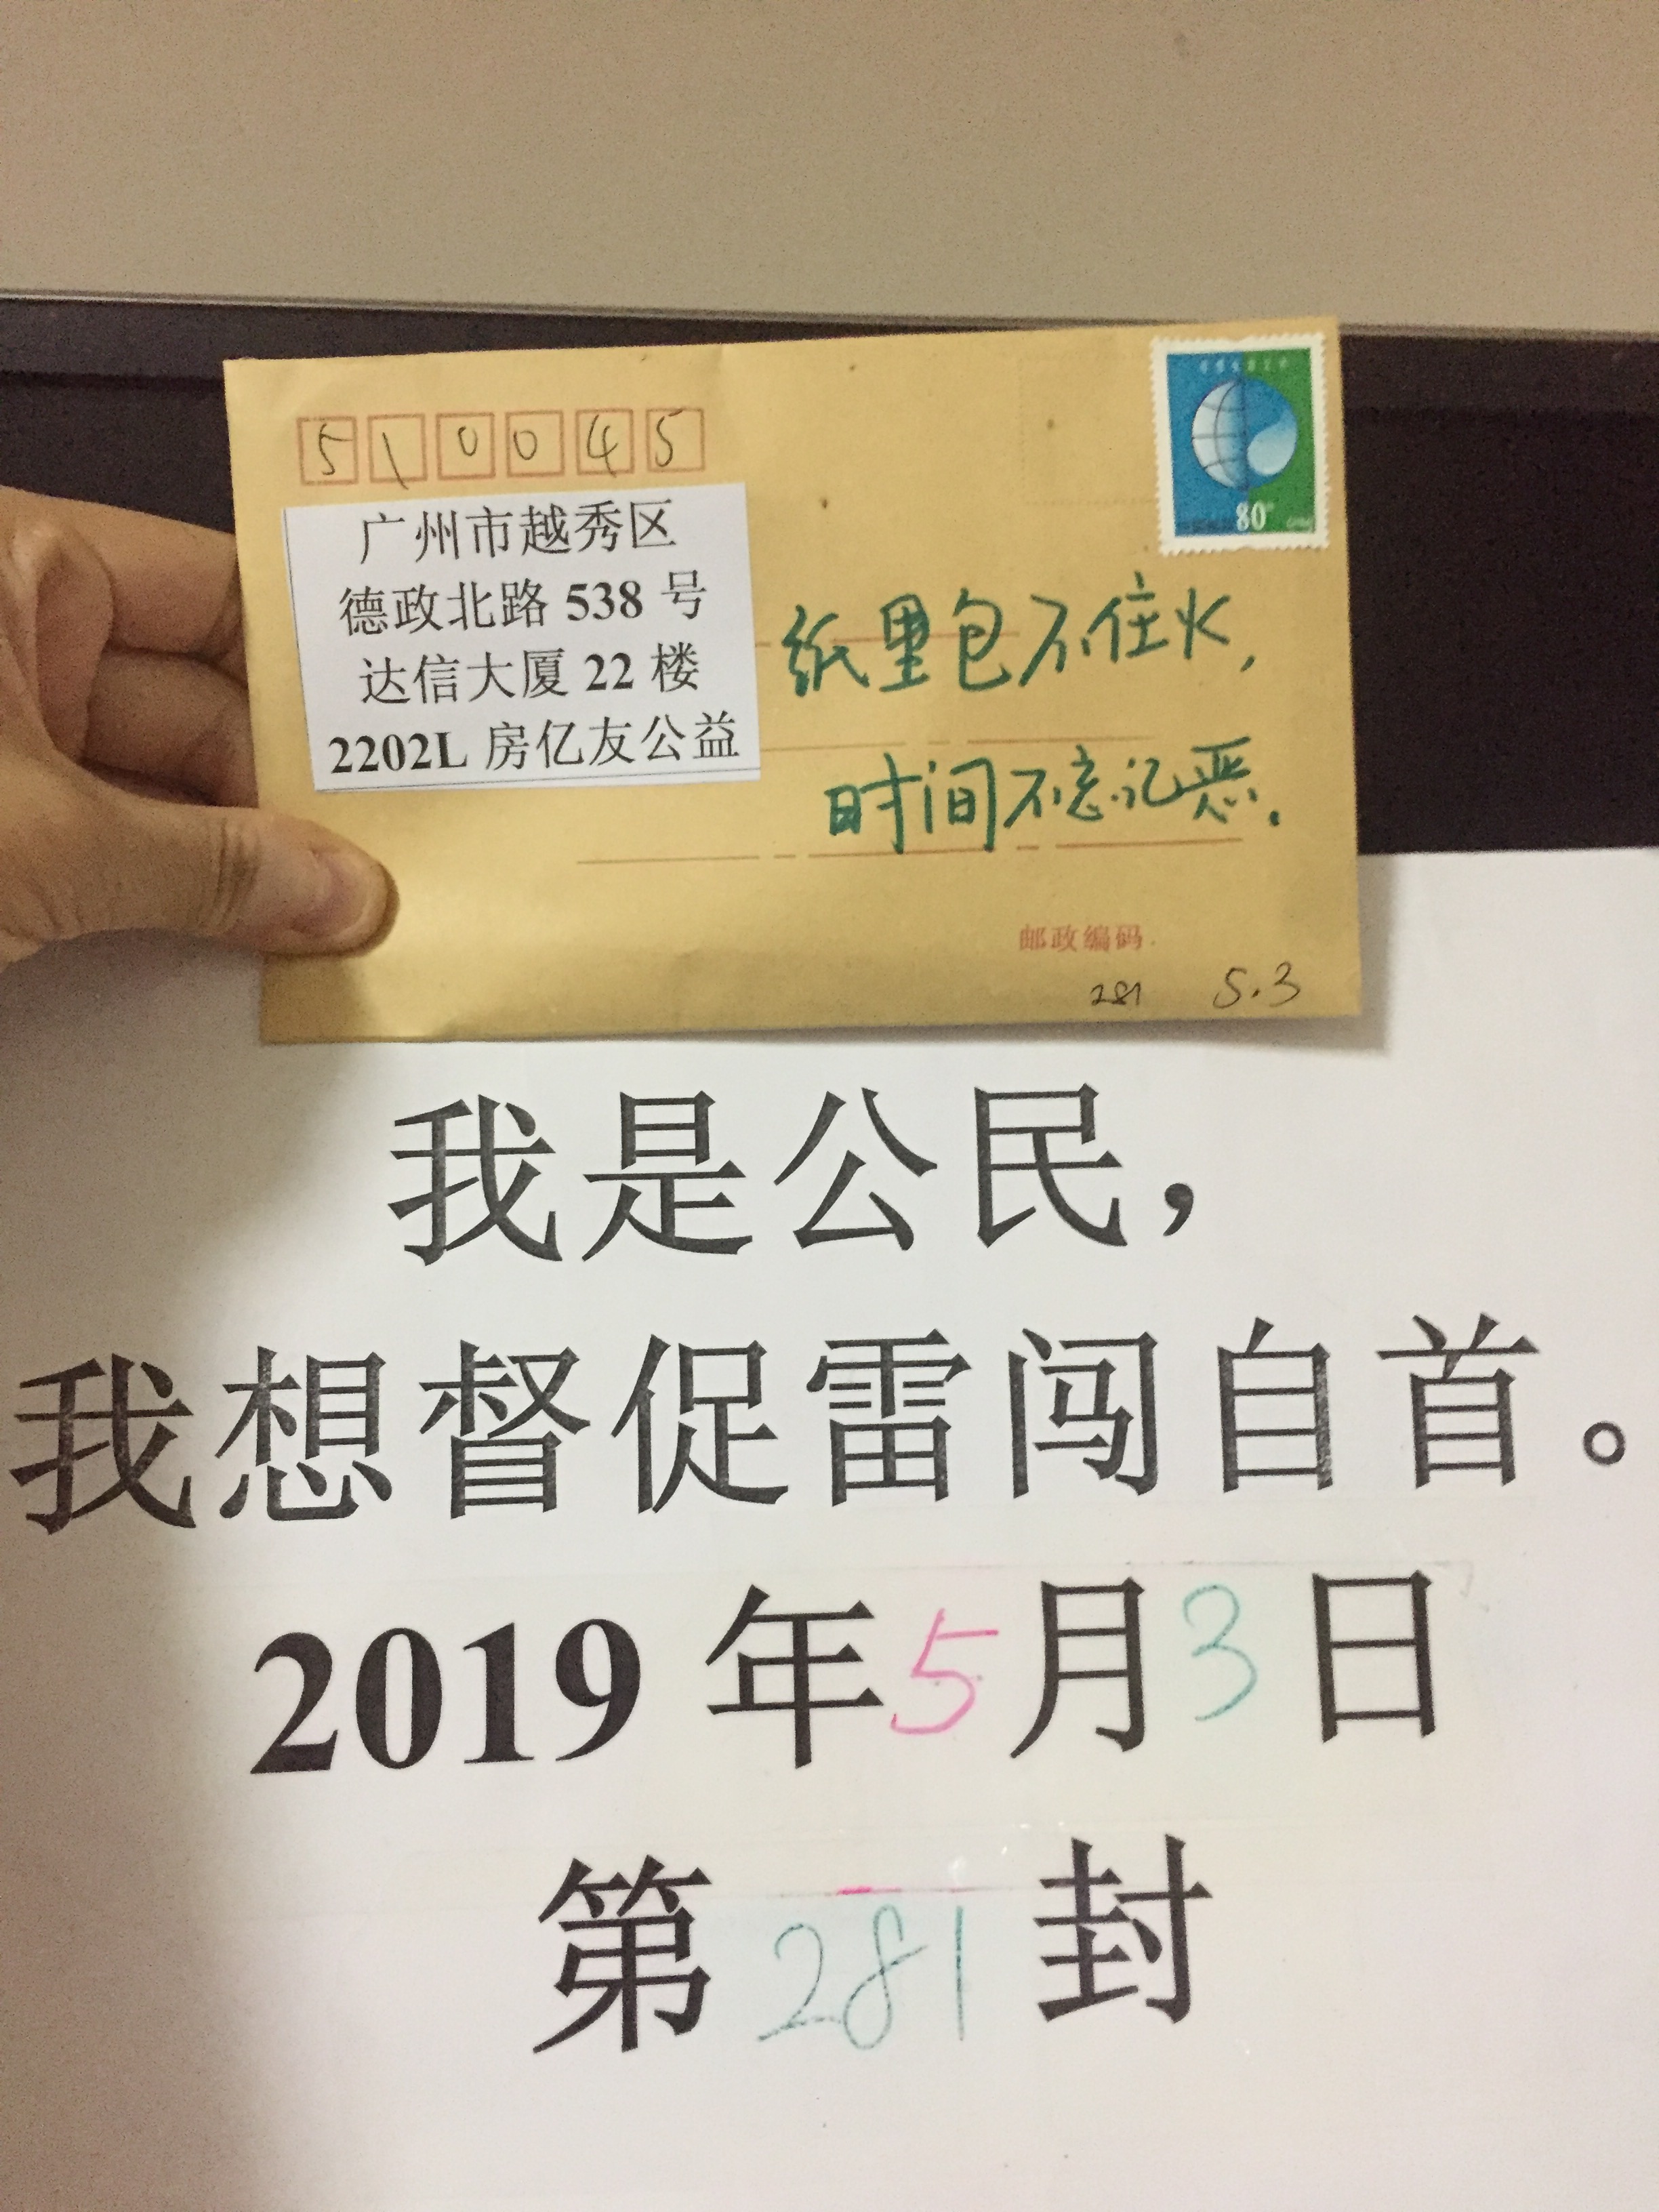 510045
广州市越秀区
德政北路 538 号
达信大厦 22 楼
2202L 房亿友公益
80
纸里包不住火,
时间不忘记恶.
邮政编码
281 5.3
我是公民，
我想督促雷闯自首。
2019 年 5 月 3 日
第 281 封